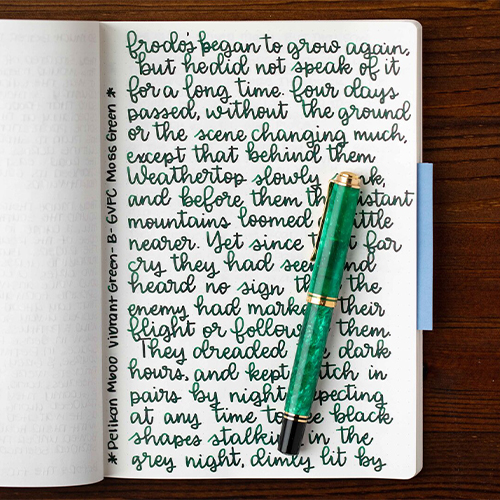 *Pelikan M600 Vibrant Green - B - GVFC Moss Green *
frodo's began to grow again,
but he did not speak of it
for a long time. four days
passed, without the ground
or the scene changing much,
except that behind them
Weathertop slowly
and before them
mountains loomed
nearer. Yet since far
cry they had
heard no sign the
enemy had their
flight or them.
They dreaded dark
hours, and kept in
pairs by night
at any time to black
shapes in the
grey night, dimly lit by